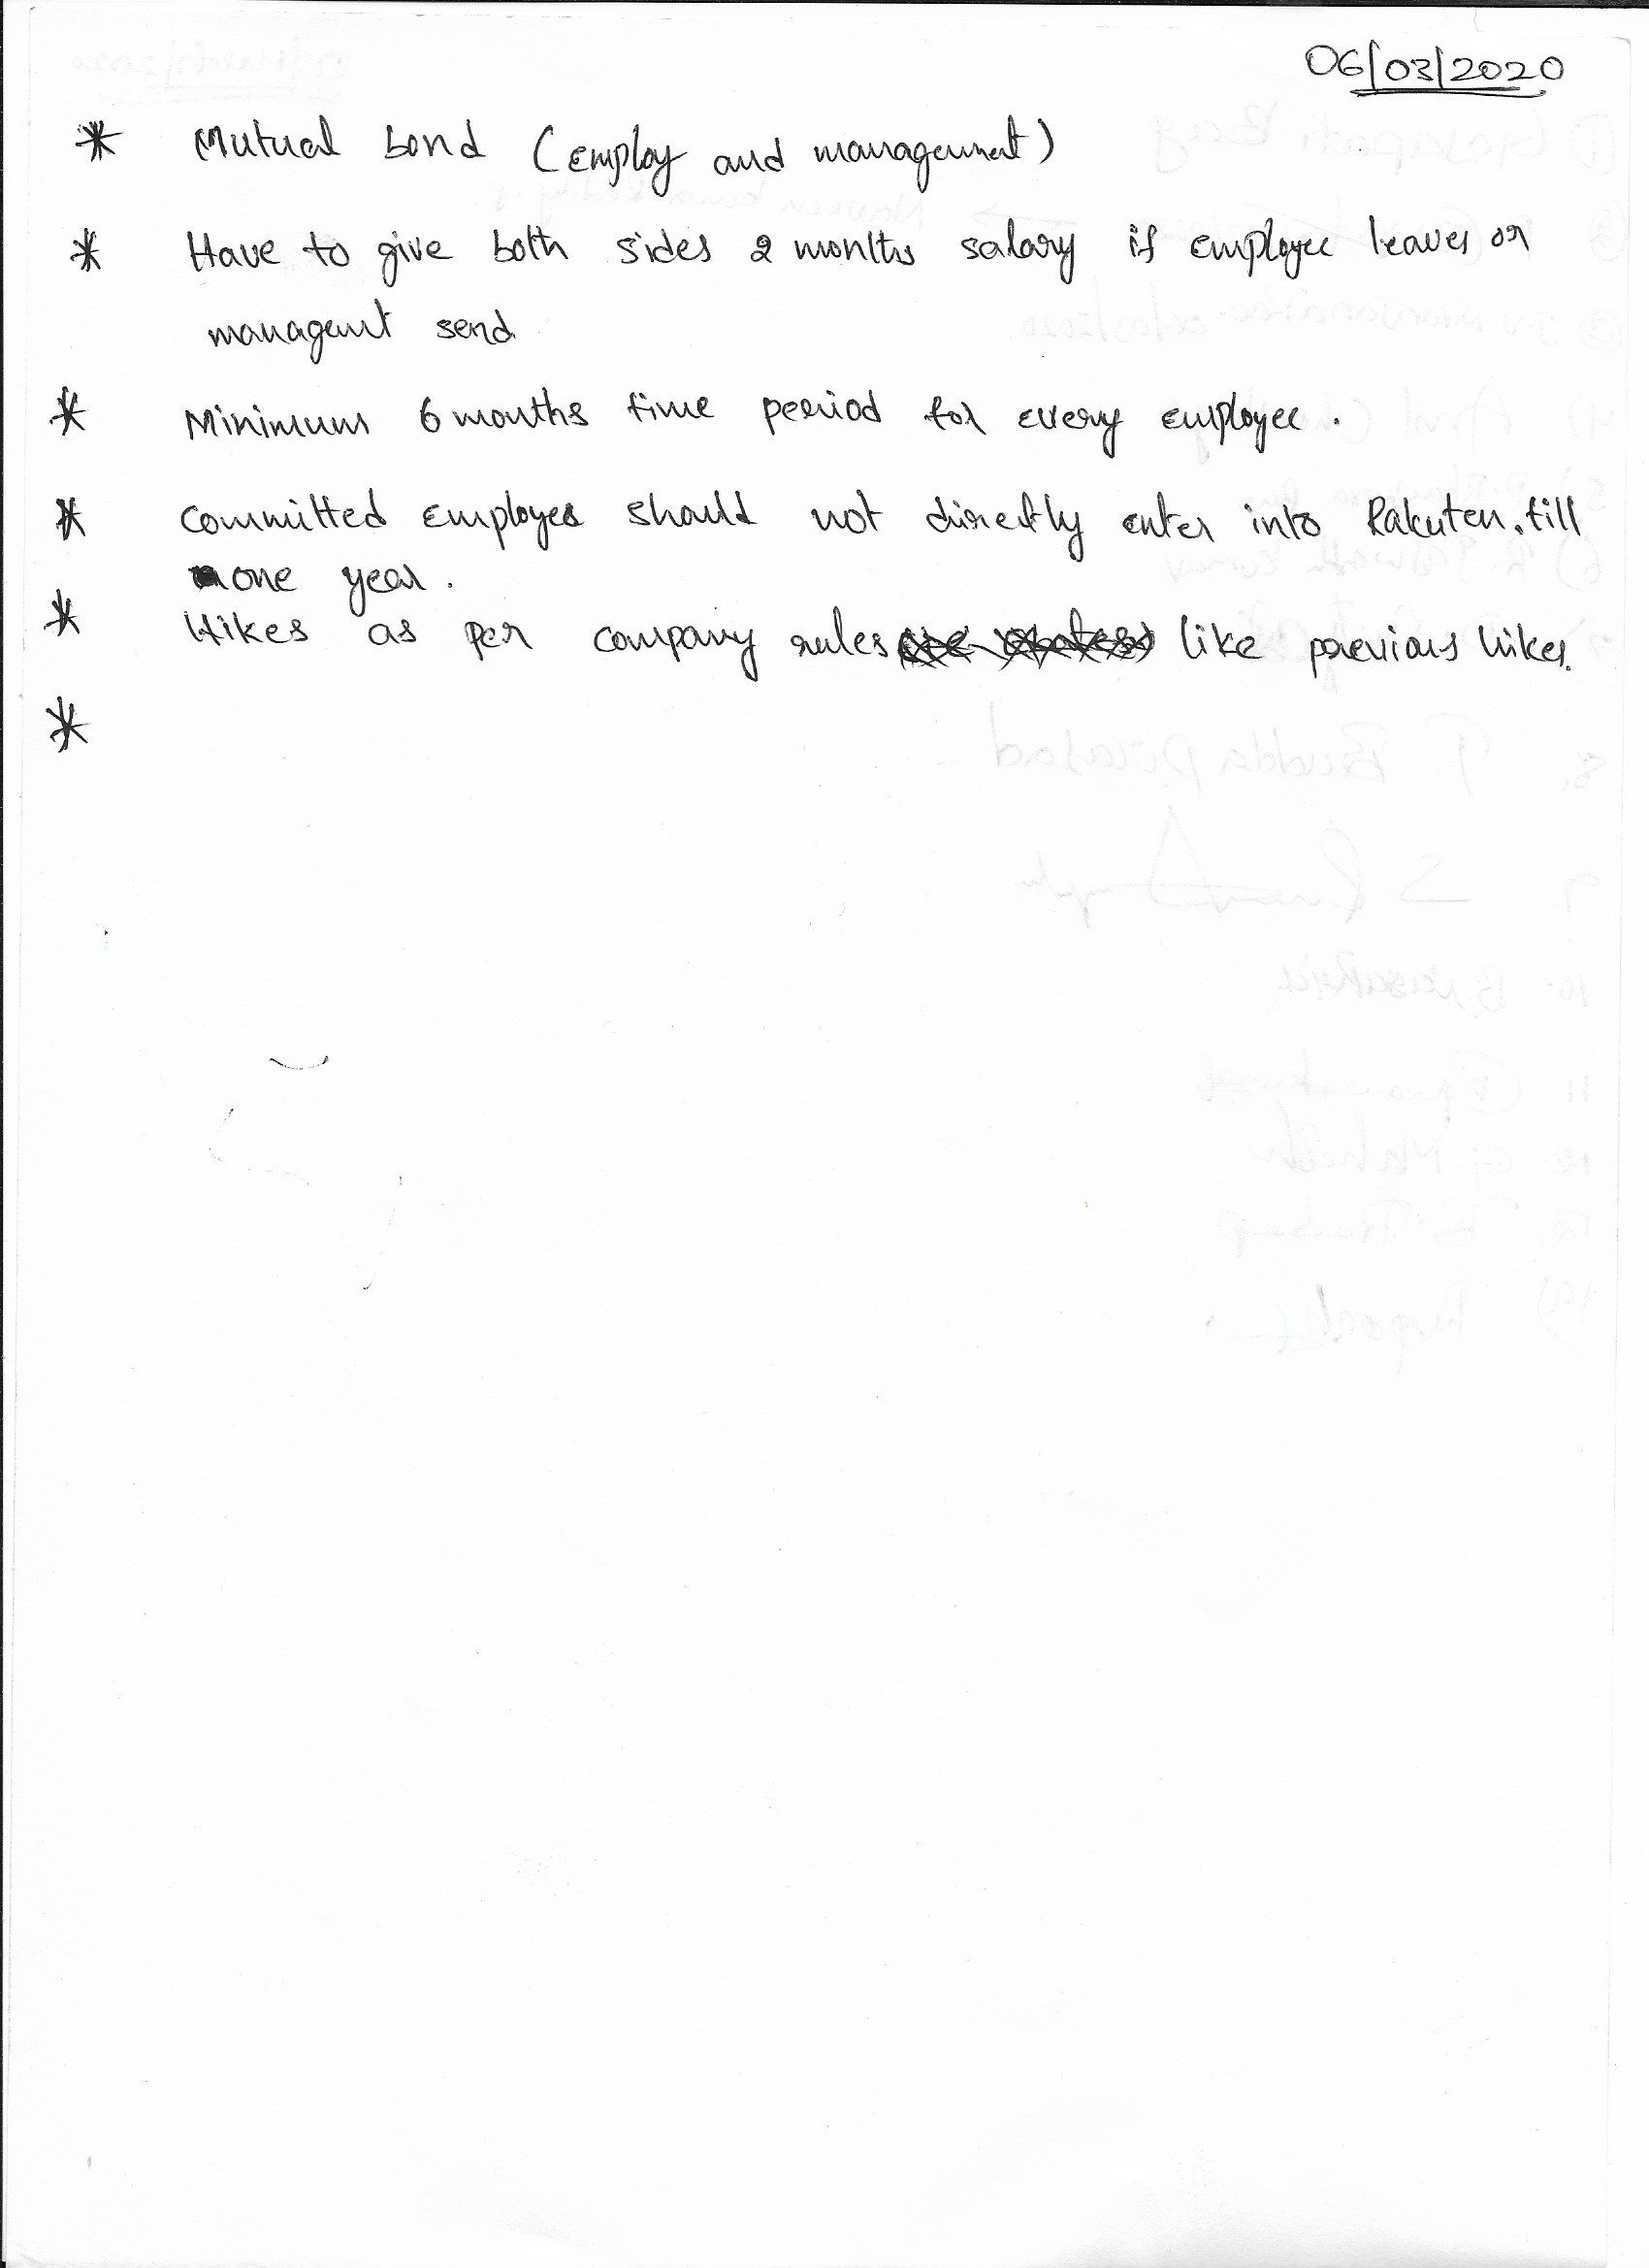 06/03/2020
* Mutual bond (Employ and management)
* Have to give both sides 2 months salary if employee leaves or
managent send
* Minimum 6 months time period for every employee.
* Committed Employee should not directly enter into Rakuten. till
one year.
* Hikes as per company rules like previous hikes.
*